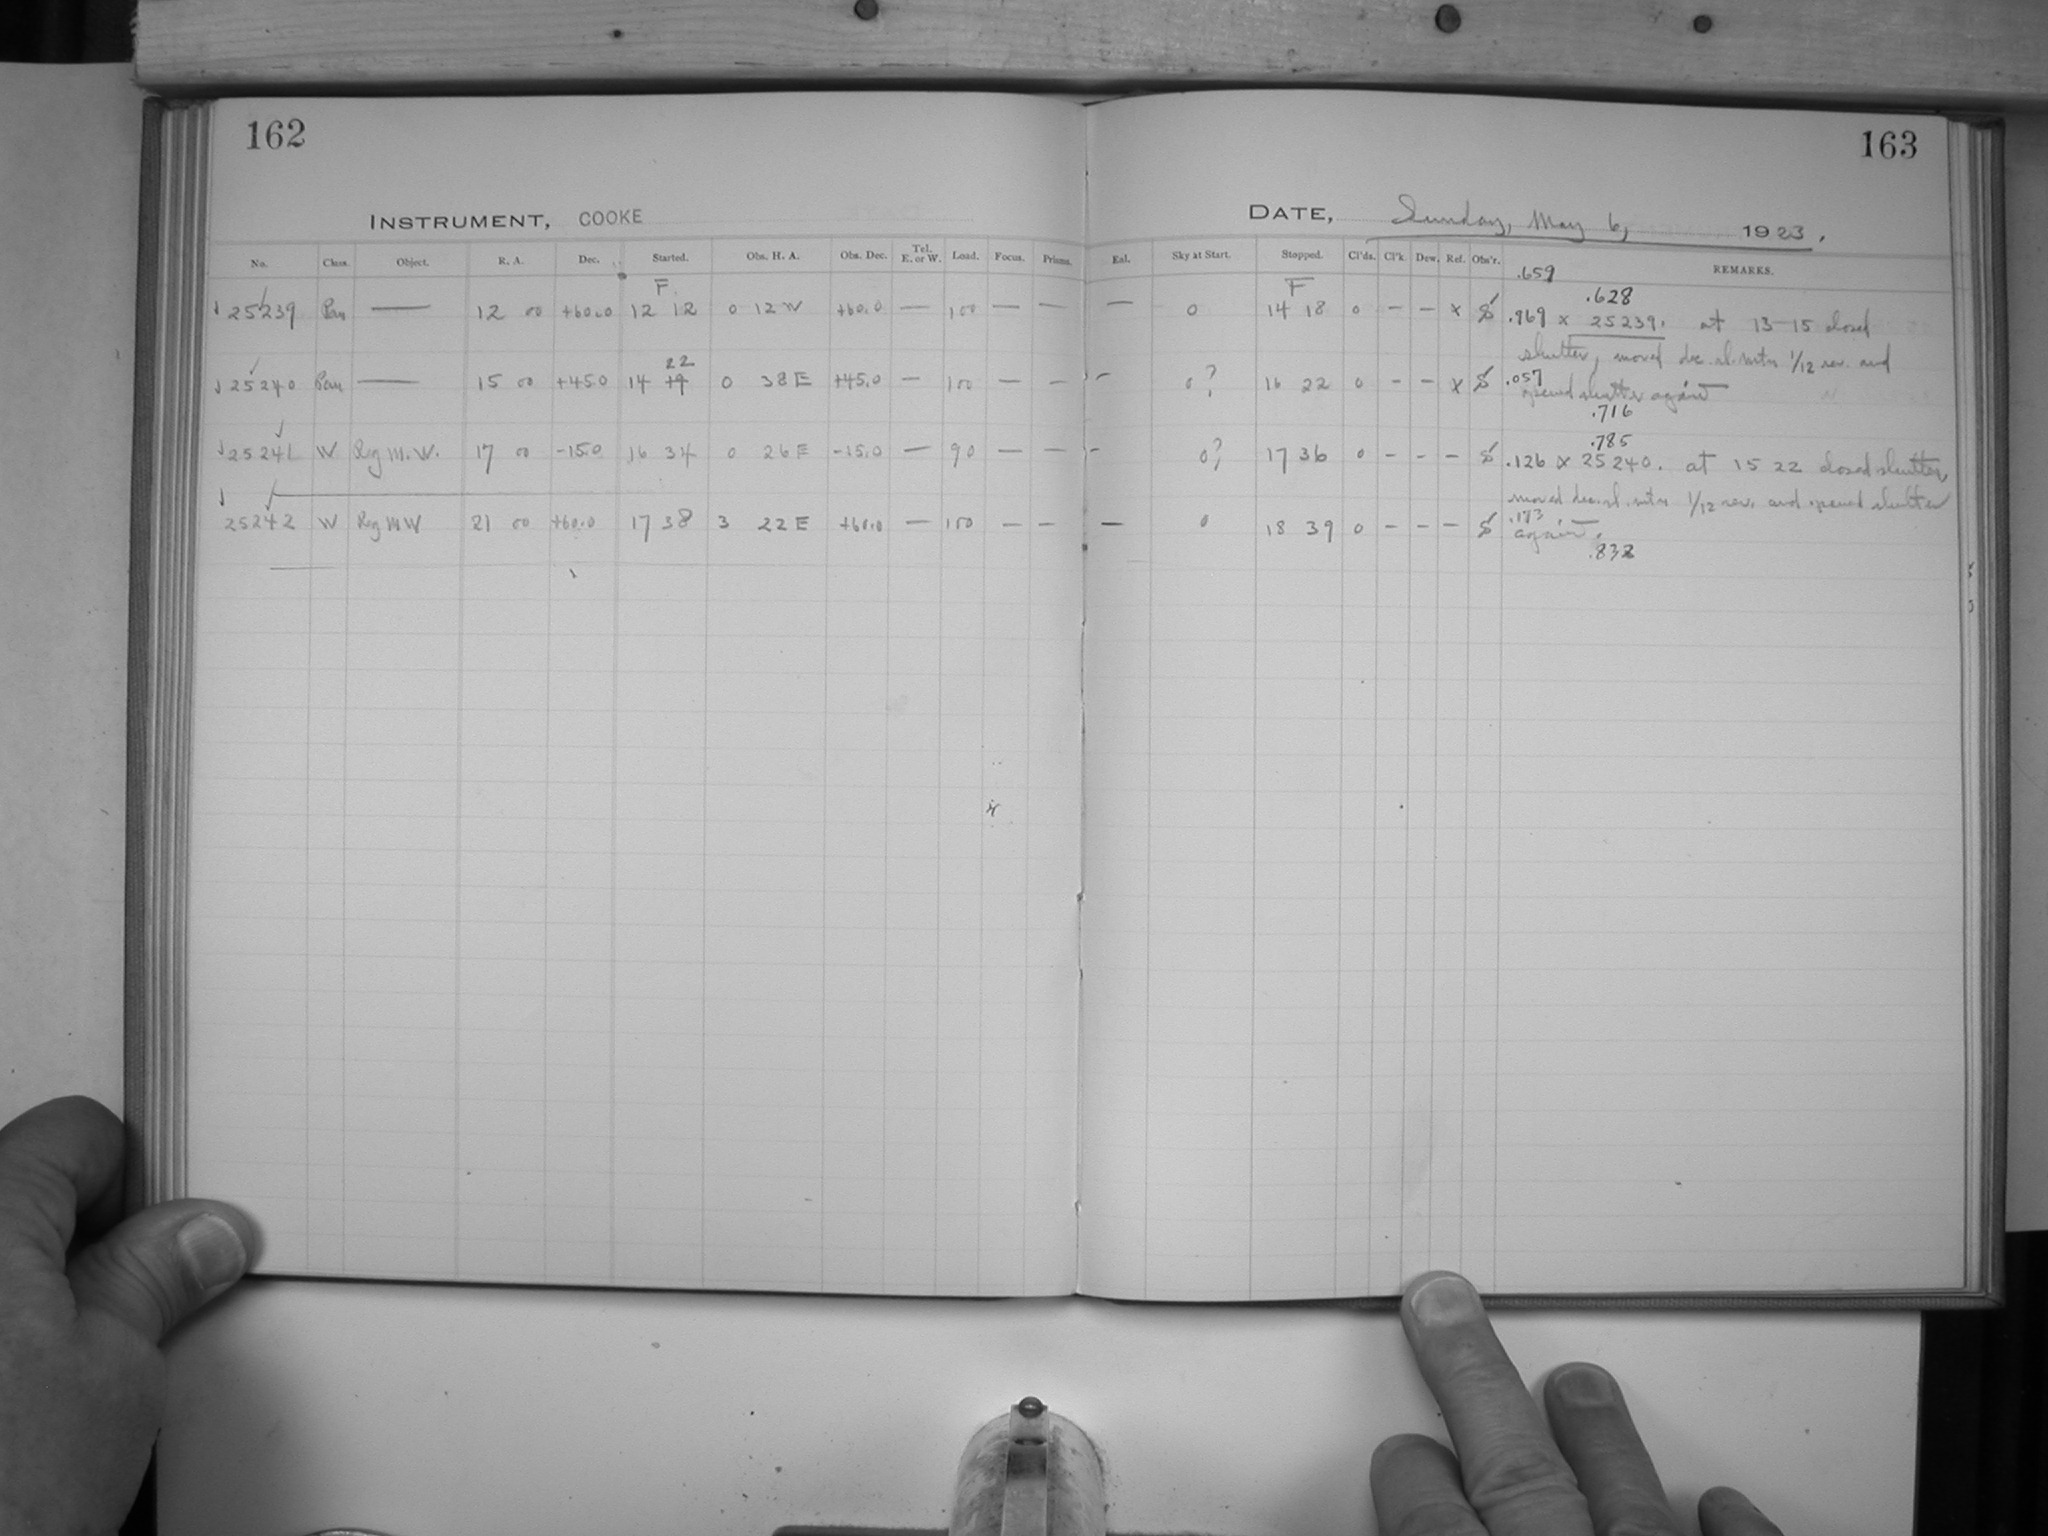 162
163
INSTRUMENT, COOKE
DATE, Sunday, May 6, 1923.
No. Class. Object. R. A. Dec. Started. Obs. H. A. Obs. Dec. Tel. E. or W. Load. Focus. Prisms. Eal. Sky at Start. Stopped. Cl'ds. Cl'k. Dew. Ref. Obs'r. REMARKS.
F F .659
25239 Pan — 12 00 +60.0 12 12 0 12 W +60.0 — 100 — — — 0 14 18 0 — — x S .969 .628
x 25239. at 13-15 closed
shutter, moved dec. sl. mtn 1/12 rev. and
25240 Pan — 15 00 +45.0 14 19 22 0 38 E +45.0 — 100 — — — 0? 16 22 0 — — x S .057
opened shutter again —
.716
25241 W Reg M. W. 17 00 -15.0 16 34 0 26 E -15.0 — 90 — — — 0? 17 36 0 - - — S .126 .785
x 25240. at 15 22 closed shutter
moved dec. sl. mtn 1/12 rev. and opened shutter
25242 W Reg M W 21 00 +60.0 17 38 3 22 E +60.0 — 100 — — — 0 18 39 0 — — — S .193
again. —
.832